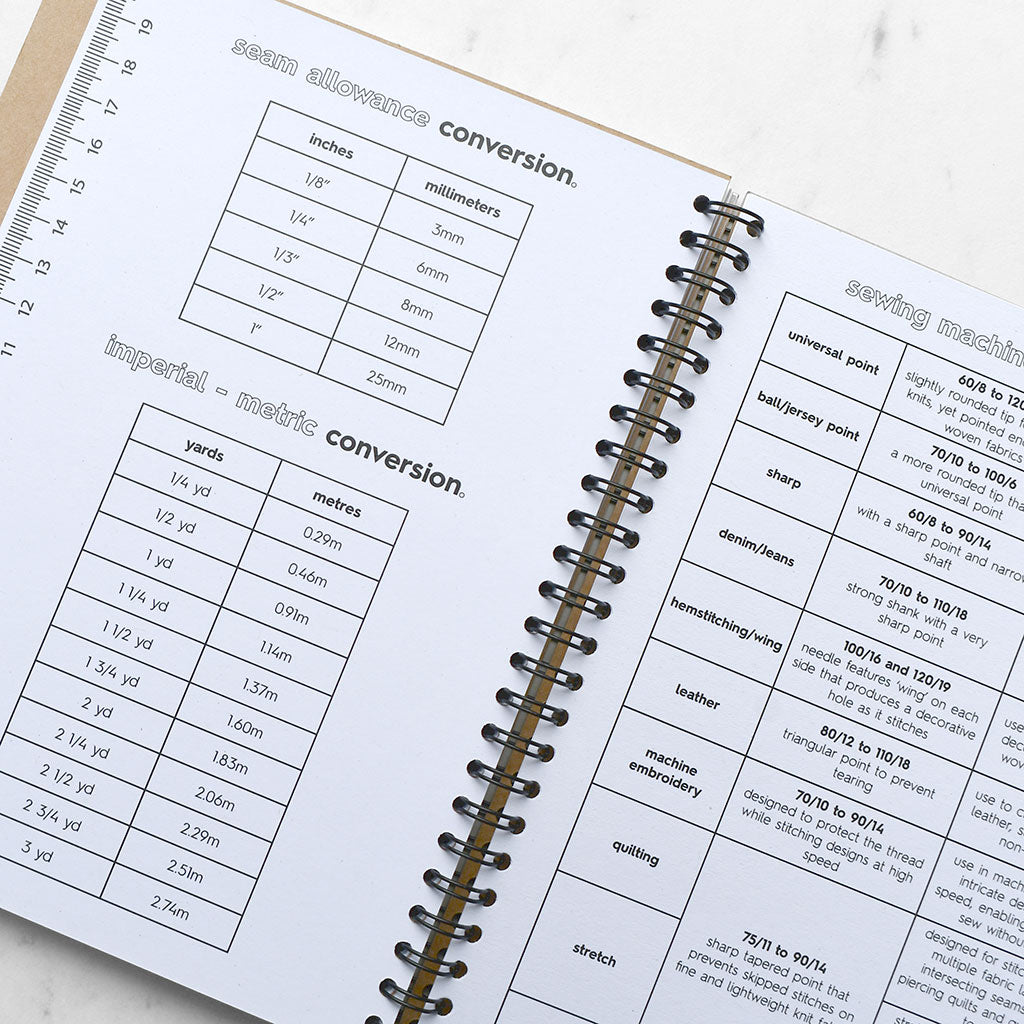 19
18
17
16
15
14
13
12
11
seam allowance conversion.
inches millimeters
1/8" 3mm
1/4" 6mm
1/3" 8mm
1/2" 12mm
1" 25mm
imperial - metric conversion.
yards metres
1/4 yd 0.29m
1/2 yd 0.46m
1 yd 0.91m
1 1/4 yd 1.14m
1 1/2 yd 1.37m
1 3/4 yd 1.60m
2 yd 1.83m
2 1/4 yd 2.06m
2 1/2 yd 2.29m
2 3/4 yd 2.51m
3 yd 2.74m
sewing
universal point
60/8 to
slightly rounded tip
knits, yet pointed
woven fabrics
ball/jersey point
70/10 to 100/6
a more rounded tip
universal point
sharp
60/8 to 90/14
with a sharp point and
shaft
denim/jeans
70/10 to 110/18
strong shank with a very
sharp point
hemstitching/wing
100/16 and 120/19
needle features 'wing' on each
side that produces a decorative
hole as it stitches
leather
80/12 to 110/18
triangular point to prevent
tearing
machine
embroidery
70/10 to 90/14
designed to protect the thread
while stitching designs at high
speed
quilting
stretch
75/11 to 90/14
sharp tapered point that
prevents skipped stitches on
fine and lightweight knit
use to
leather,
use in
intricate
speed,
sew
designed for
multiple fabric
intersecting
piercing quilts and